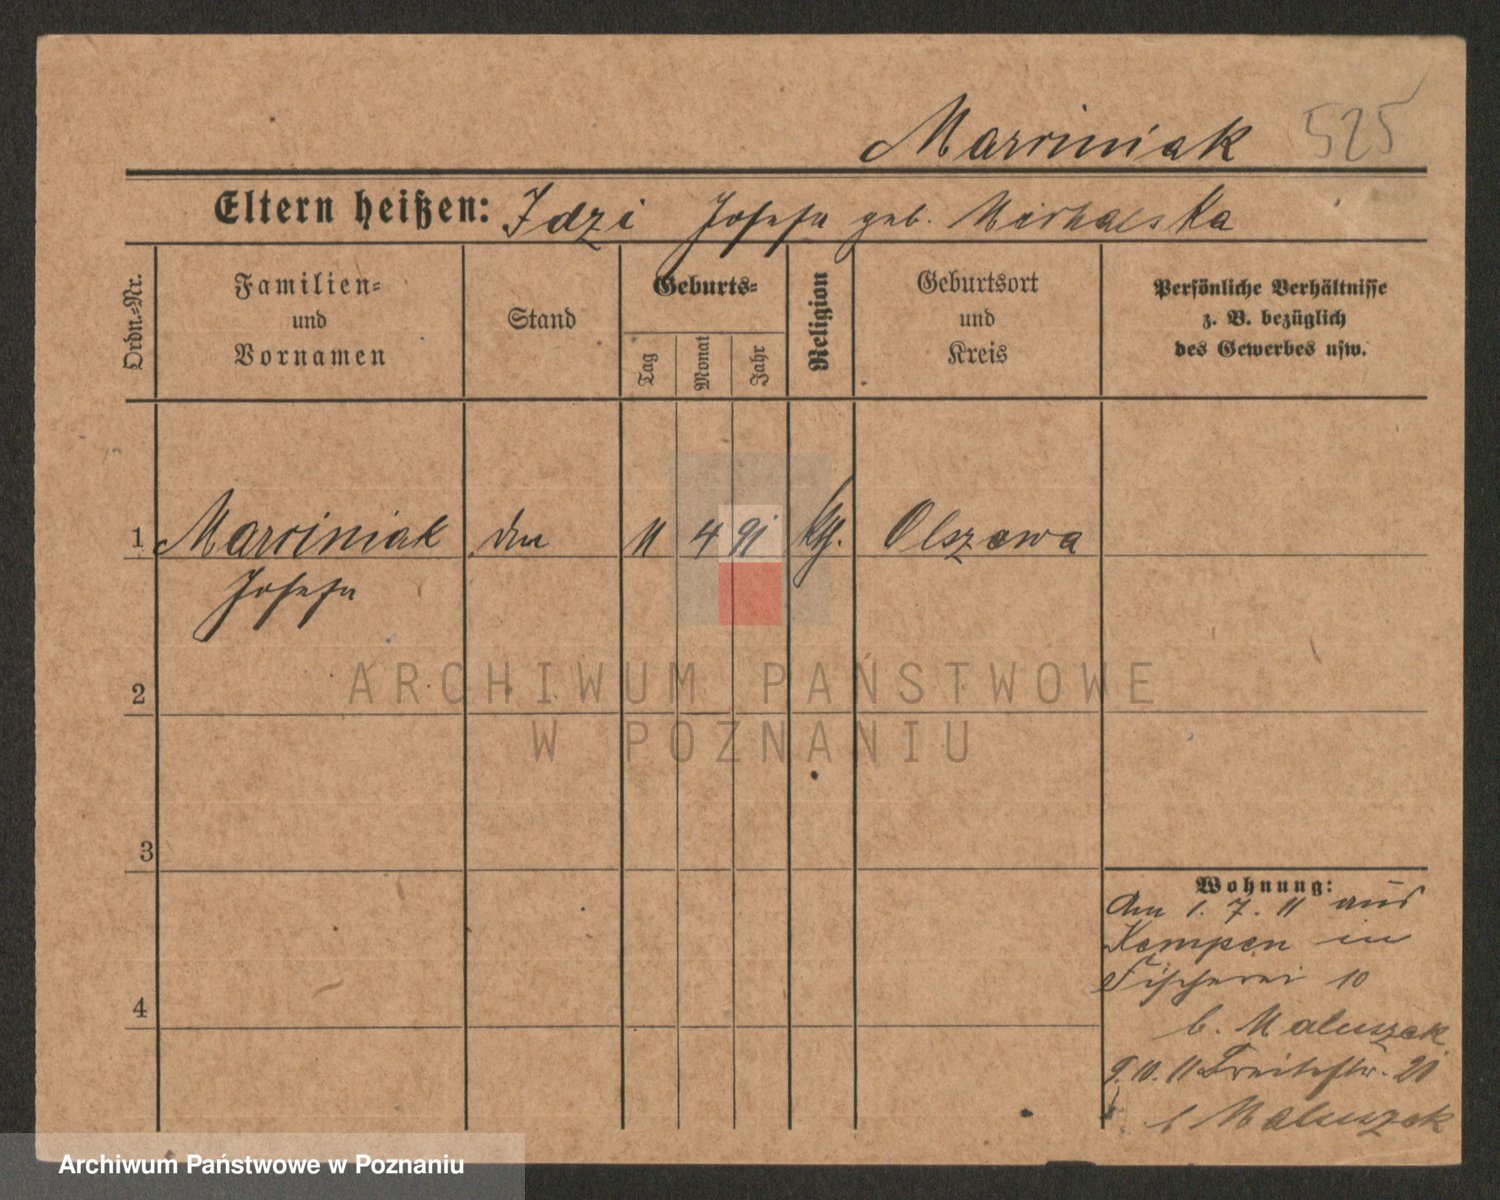 Marciniak 525
Eltern heißen: Idzi Josefa geb. Michalska
Ordn.-Nr.
Familien-
und
Vornamen
Stand
Geburts-
Tag
Monat
Jahr
Religion
Geburtsort
und
Kreis
Persönliche Verhältnisse
z. B. bezüglich
des Gewerbes usw.
1 Marciniak 11 4 91 Olszowa
Josefa
2
3
4
Wohnung:
Am 1. 7. 11 aus
Kempen in
Fischerei 10
b. Maluszek
9.10.11 Breitestr. 21
b Maluszek
ARCHIWUM PAŃSTWOWE
W POZNANIU
Archiwum Państwowe w Poznaniu